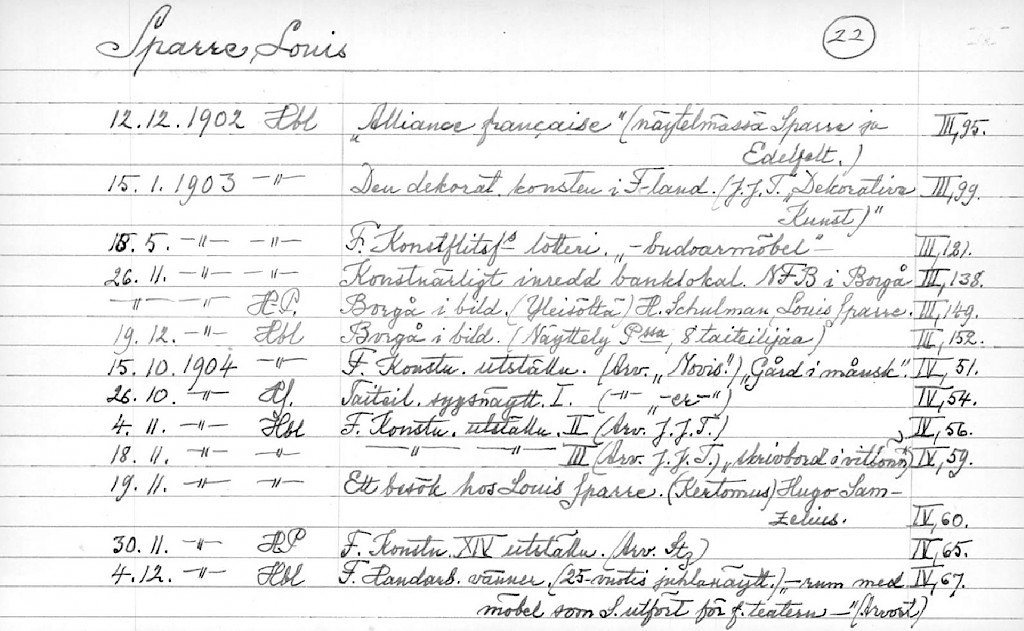 Sparre Louis 22
12.12.1902 Hbl „Alliance française" (näytelmässä Sparre ja III,95.
Edelfelt.)
15.1.1903 -"- Den dekorat. konsten i F-land. (J.J.T. „Dekorative III,99.
Kunst)"
18.5. -"- -"- F. Konstflitsf-s lotteri. „-budoarmöbel"- III,121.
26.11. -"- -"- Konstnärligt inredd banklokal. NFB i Borgå III,138.
-"- -"- H.P. Borgå i bild. (Yleisöltä) H. Schulman, Louis Sparre. III,149.
19.12. -"- Hbl Borgå i bild. (Näyttely P:ssa, 8 taiteilijaa) III,152.
15.10.1904 -"- F. Konstn. utställn. (Arv. „Novis".) „Gård i månsk". IV, 51.
26.10. -"- Hf. Taiteil. syysnäytt. I. (-"- „-er-") IV,54.
4.11. -"- Hbl F. Konstn. utställn. II (Arv. J.J.T.) IV,56.
18.11. -"- -"- -"- -"- III (Arv. J.J.T.) „skrivbord i vitlönn") IV,59.
19.11. -"- -"- Ett besök hos Louis Sparre. (Kertomus) Hugo Sam-
zelius. IV,60.
30.11. -"- HP F. Konstn. XIV utställn. (Arv. Stz) IV,65.
4.12. -"- Hbl F. Handarb. vänner. (25-vuotis juhlanäytt.) „-rum med IV,67.
möbel som S. utfört för f. teatern -" (Arvost)